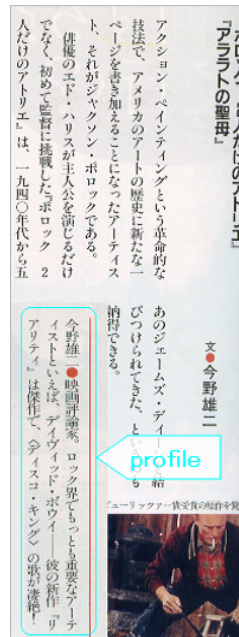 『アララトの聖母』
文●今野雄二
アクション・ペインティングという革命的な
技法で、アメリカのアートの歴史に新たな一
ページを書き加えることになったアーティス
ト、それがジャクソン・ポロックである。
俳優のエド・ハリスが主人公を演じるだけ
でなく、初めて監督に挑戦した『ポロック 2
人だけのアトリエ』は、一九四〇年代から五
あのジェームズ・ディー
びつけられてきた、という
納得できる。
今野雄二●映画評論家。ロック界でもっとも重要なアーテ
ィストといえば、デイヴィッド・ボウイ――彼の新作『リ
アリティ』は傑作で、〈ディスコ・キング〉の歌が凄絶!
profile